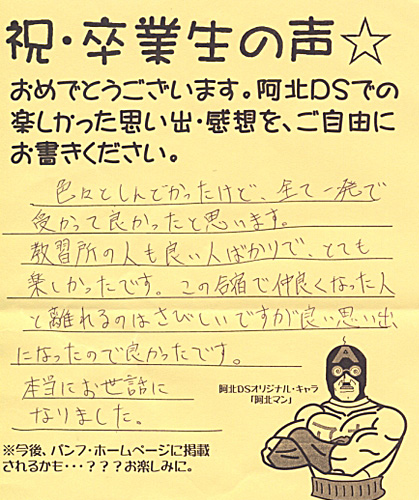 祝・卒業生の声☆
おめでとうございます。阿北DSでの
楽しかった思い出・感想を、ご自由に
お書きください。
色々としんどかったけど、全て一発で
受かって良かったと思います。
教習所の人も良い人ばかりで、とても
楽しかったです。この合宿で仲良くなった人
と離れるのはさびしいですが良い思い出
になったので良かったです。
本当にお世話に
なりました。
阿北DSオリジナル・キャラ
「阿北マン」
※今後、パンフ・ホームページに掲載
されるかも・・・？？？お楽しみに。